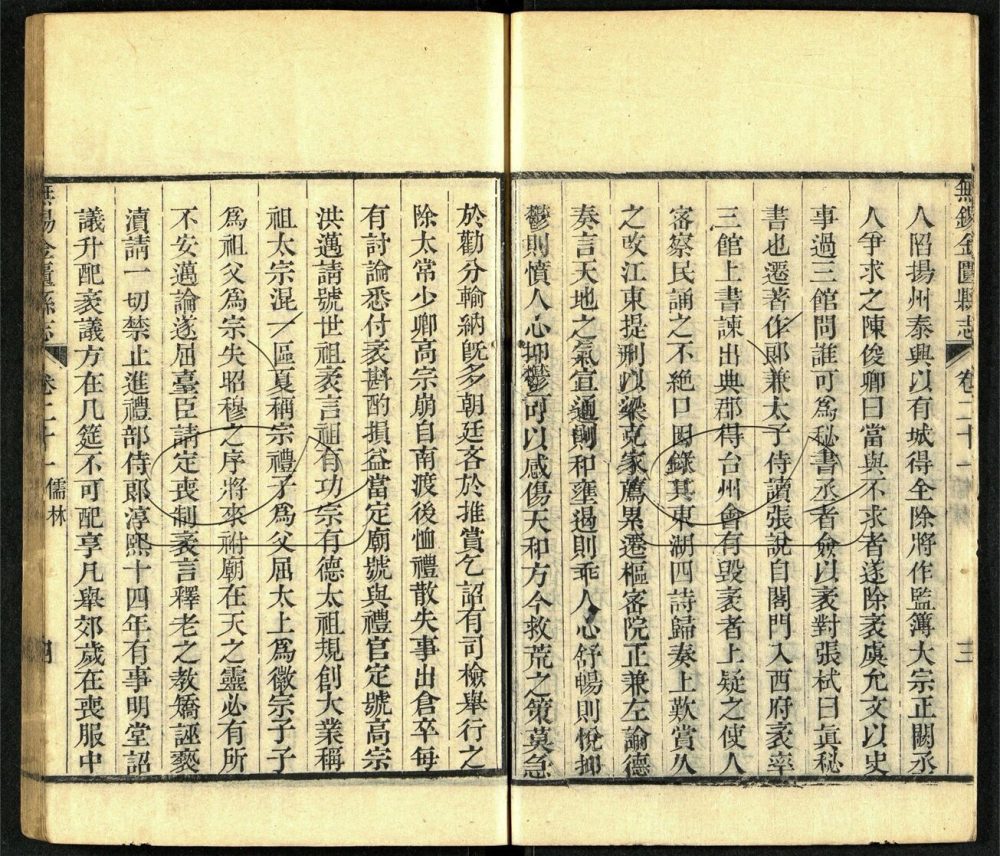 無錫金匱縣志 卷二十一 三
人陷揚州泰興以有城得全除將作監簿大宗正闕丞
人爭求之陳俊卿曰當與不求者遂除袤虞允文以史
事過三館問誰可爲秘書丞者僉以袤對張栻曰眞秘
書也遷著作郎兼太子侍讀張說自閤門入西府袤率
三館上書諫出典郡得台州會有毀袤者上疑之使人
密察民誦之不絕口因錄其東湖四詩歸奏上歎賞久
之改江東提刑以梁克家薦累遷樞密院正兼左諭德
奏言天地之氣宣通則和壅遏則乖人心舒暢則悅抑
鬱則憤人心抑鬱可以感傷天和方今救荒之策莫急
於勸分輸納旣多朝廷吝於推賞乞詔有司檢舉行之
除太常少卿高宗崩自南渡後恤禮散失事出倉卒每
有討論悉付袤斟酌損益當定廟號與禮官定號高宗
洪邁請號世祖袤言祖有功宗有德太祖規創大業稱
祖太宗混一區夏稱宗禮子爲父屈太上爲徽宗子子
爲祖父爲宗失昭穆之序將來祔廟在天之靈必有所
不安邁論遂屈臺臣請定喪制袤言釋老之教矯誣褻
瀆請一切禁止進禮部侍郎淳熙十四年有事明堂詔
議升配袤議方在几筵不可配享凡舉郊歲在喪服中
無錫金匱縣志 卷二十一 儒林 四